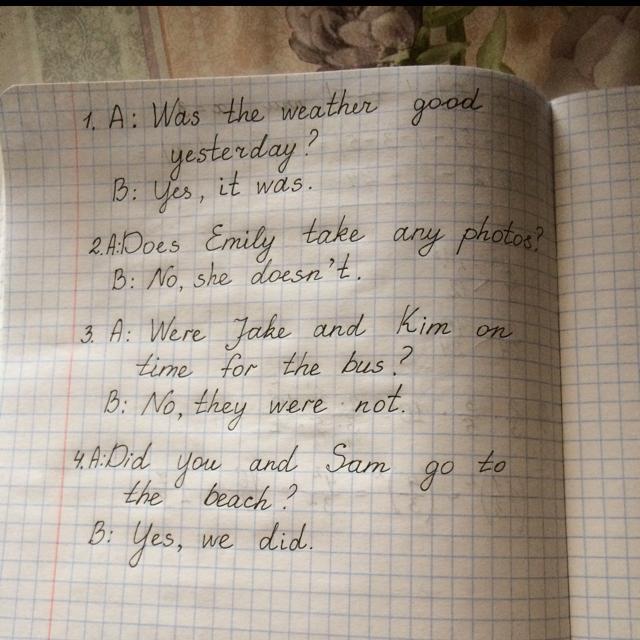 1. A: Was the weather good
yesterday?
B: Yes, it was.
2. A: Does Emily take any photos?
B: No, she doesn't.
3. A: Were Jake and Kim on
time for the bus?
B: No, they were not.
4. A: Did you and Sam go to
the beach?
B: Yes, we did.